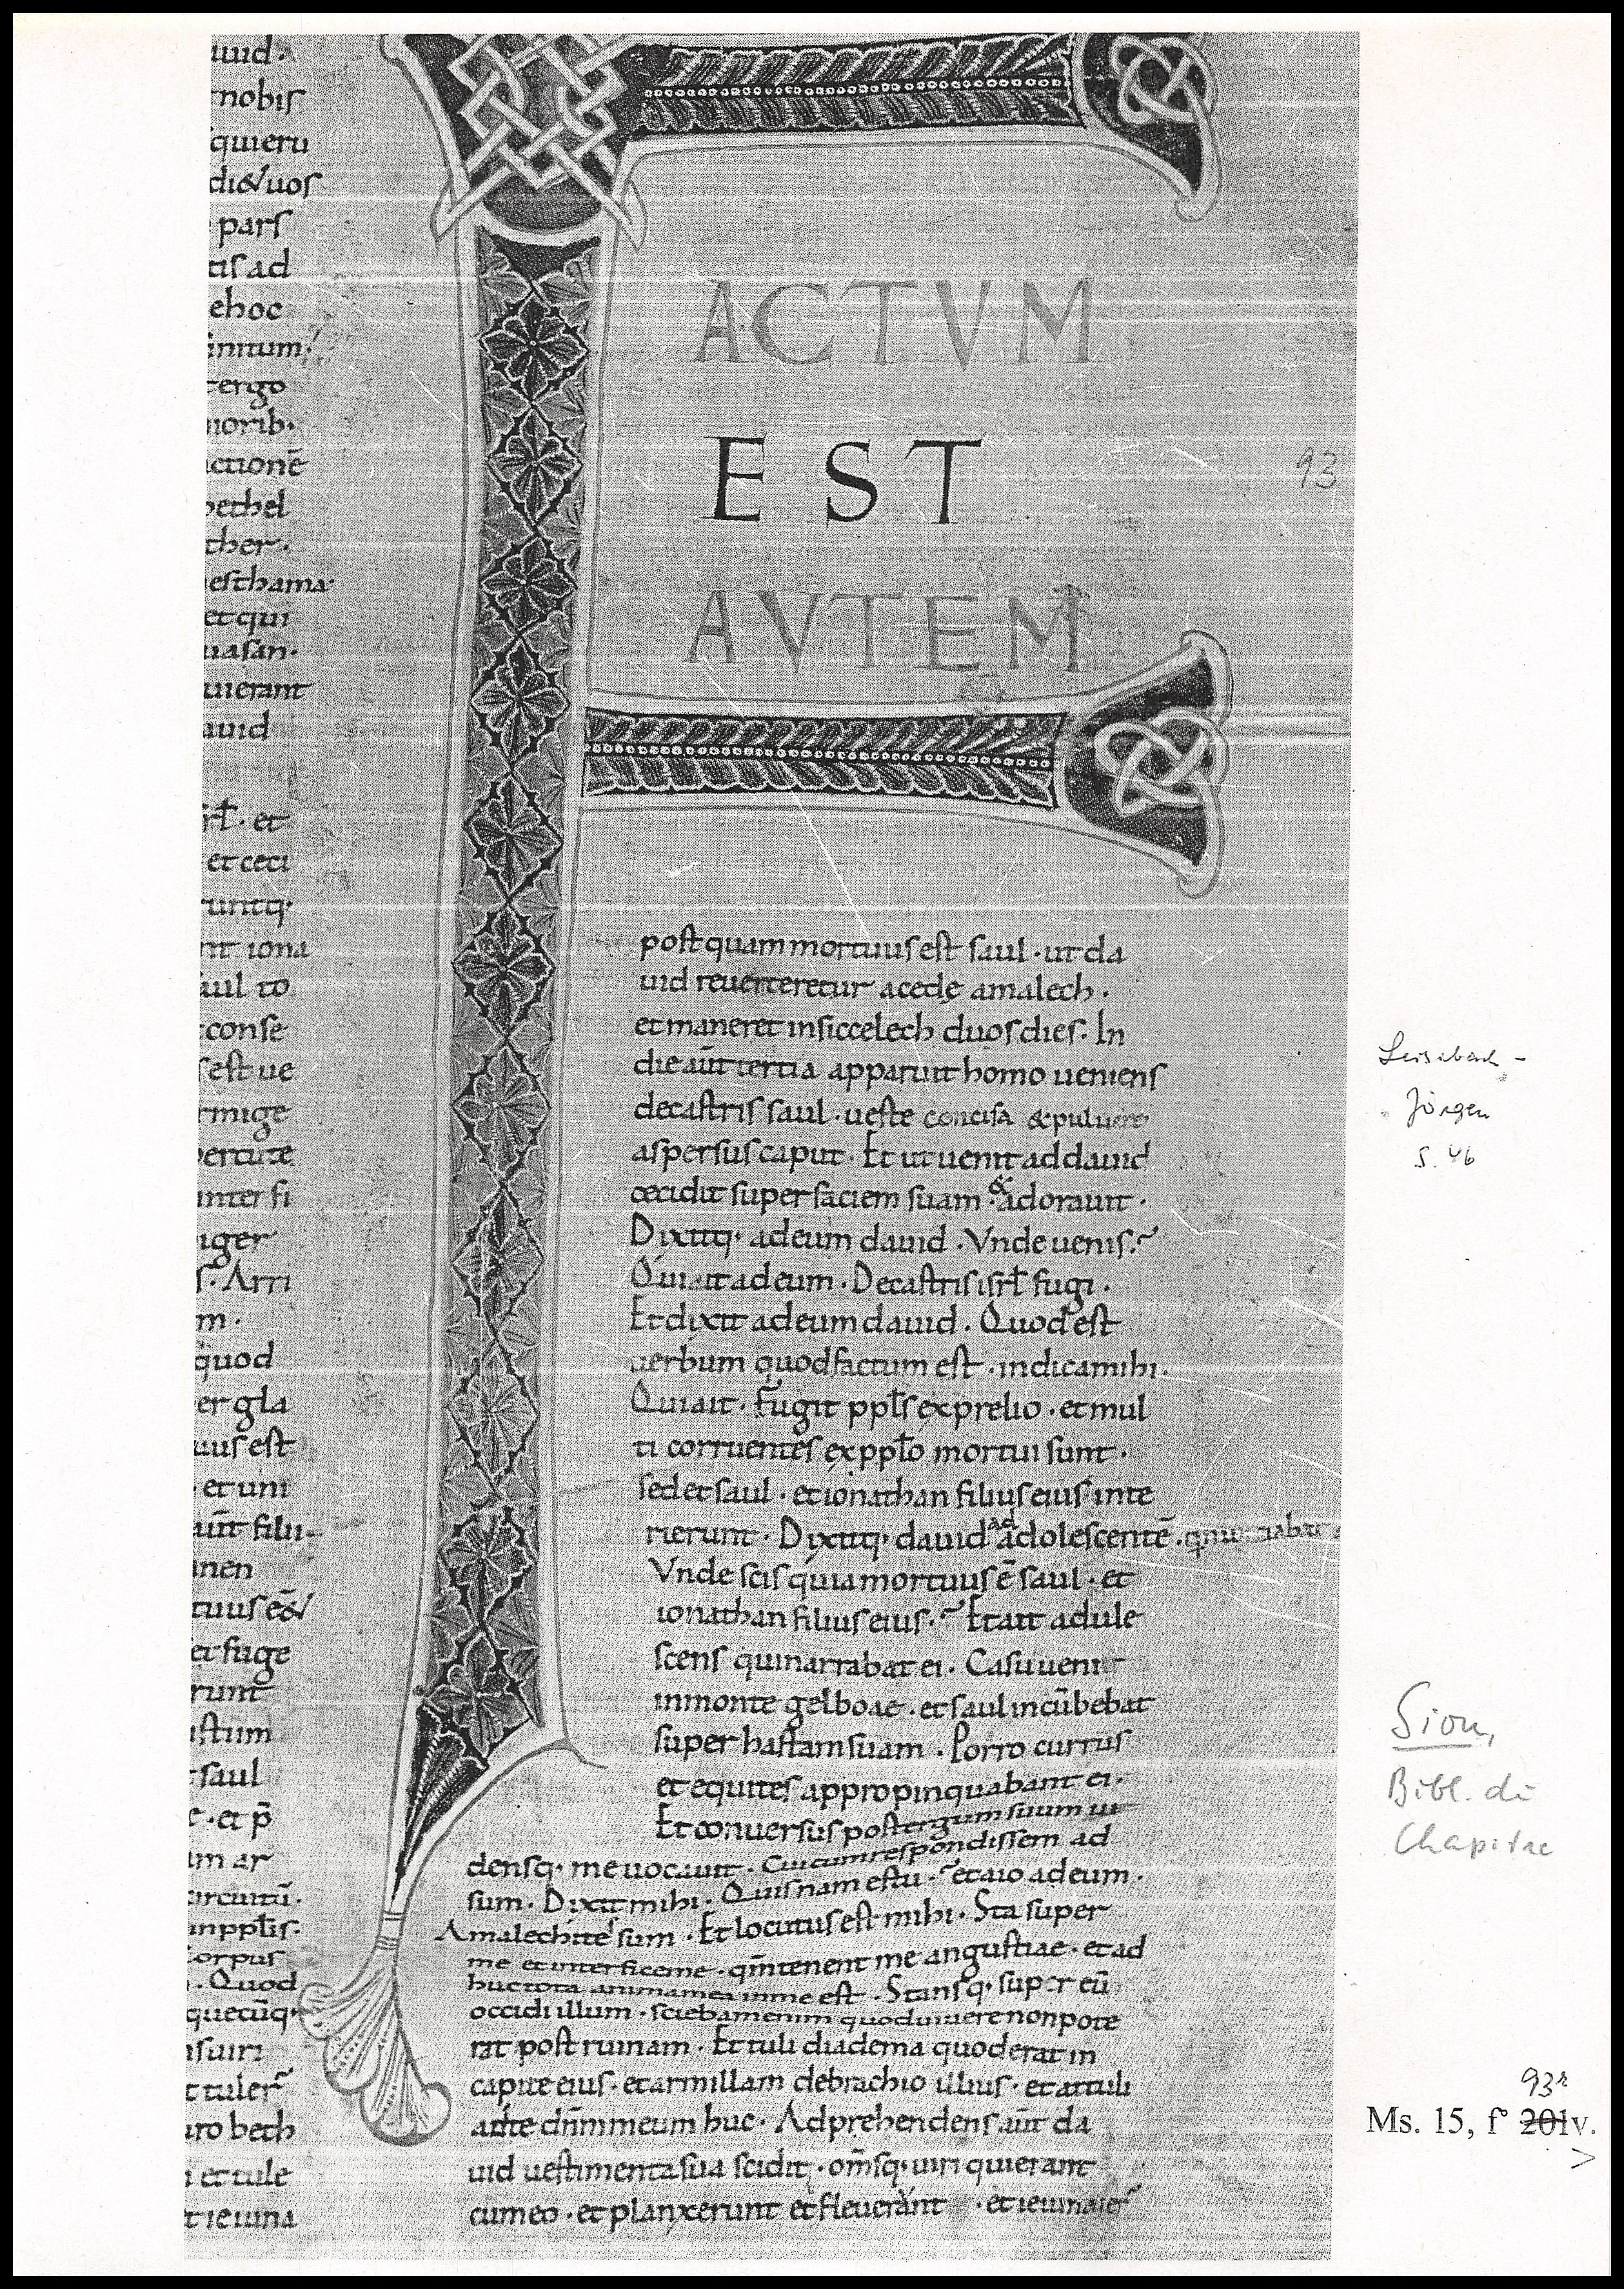 uid.
nobis
quieru
di&uos
pars
tis ad
ehoc
finitum.
ergo
morib.
ctionē
bethel
ther.
esthama
et qui
uasan.
uierant
auid
isrł. et
et ceci
runtq.
nt iona
aul to
conse
est ue
rmige
percute
inter fi
iger
s. Arri
m.
quod
er gla
uus est
et uni
aūt filii
men
tuus ē&
et fuge
runt
stum
saul
et p̄
m ar
circuitū.
inppłis.
corpus
. Quod
quecūq.
nsuiri
t tuler̄
uro beth
et tule
t ieiuna
F
ACTVM
EST
AVTEM
93
post quam mortuus est saul . ut da
uid reuerteretur acede amalech .
et maneret insiccelech duos dies . In
die aūt tertia apparuit homo ueniens
decastris saul . ueste concisa & puluere
aspersus caput . Et ut uenit ad dauid
cecidit super faciem suam . & adorauit .
Dixitq. adeum dauid . Vnde uenis .
Qui ait adeum . Decastris isrł fugi .
Et dixit adeum dauid . Quod est
uerbum quod factum est . indica mihi .
Qui ait . Fugit ppłs exprelio . et mul
ti corruentes ex ppło mortui sunt .
sed et saul . et ionathan filius eius inte
rierunt . Dixitq. dauid ad adolescentē .
Vnde scis quia mortuus ē saul . et
ionathan filius eius . Et ait adule
scens qui narrabat ei . Casu ueni
in monte gelboae . et saul incūbebat
super hastam suam . Porro currus
et equites appropinquabant ei .
Et conuersus post tergum suum ui
densq. me uocauit . Cui cum respondissem ad
sum . Dixit mihi . Quisnam es tu . et aio adeum .
Amalechites sum . Et locutus est mihi . Sta super
me et interfice me . qm̄ tenent me angustiae . et ad
huc tota anima mea in me est . Stansq. super eū
occidi illum . sciebam enim quod uiuere non pote
rat post ruinam . Et tuli diadema quod erat in
capite eius . et armillam debrachio illius . et attuli
ad te dn̄m meum huc . Adprehendens aūt da
uid uestimenta sua scidit . om̄sq. uiri qui erant
cum eo . et planxerunt et fleuerunt . et ieiunauer̄
Leisibach-
Jörgen
S. 46
Sion,
Bibl. du
Chapitre
93r
Ms. 15, f° 201v.